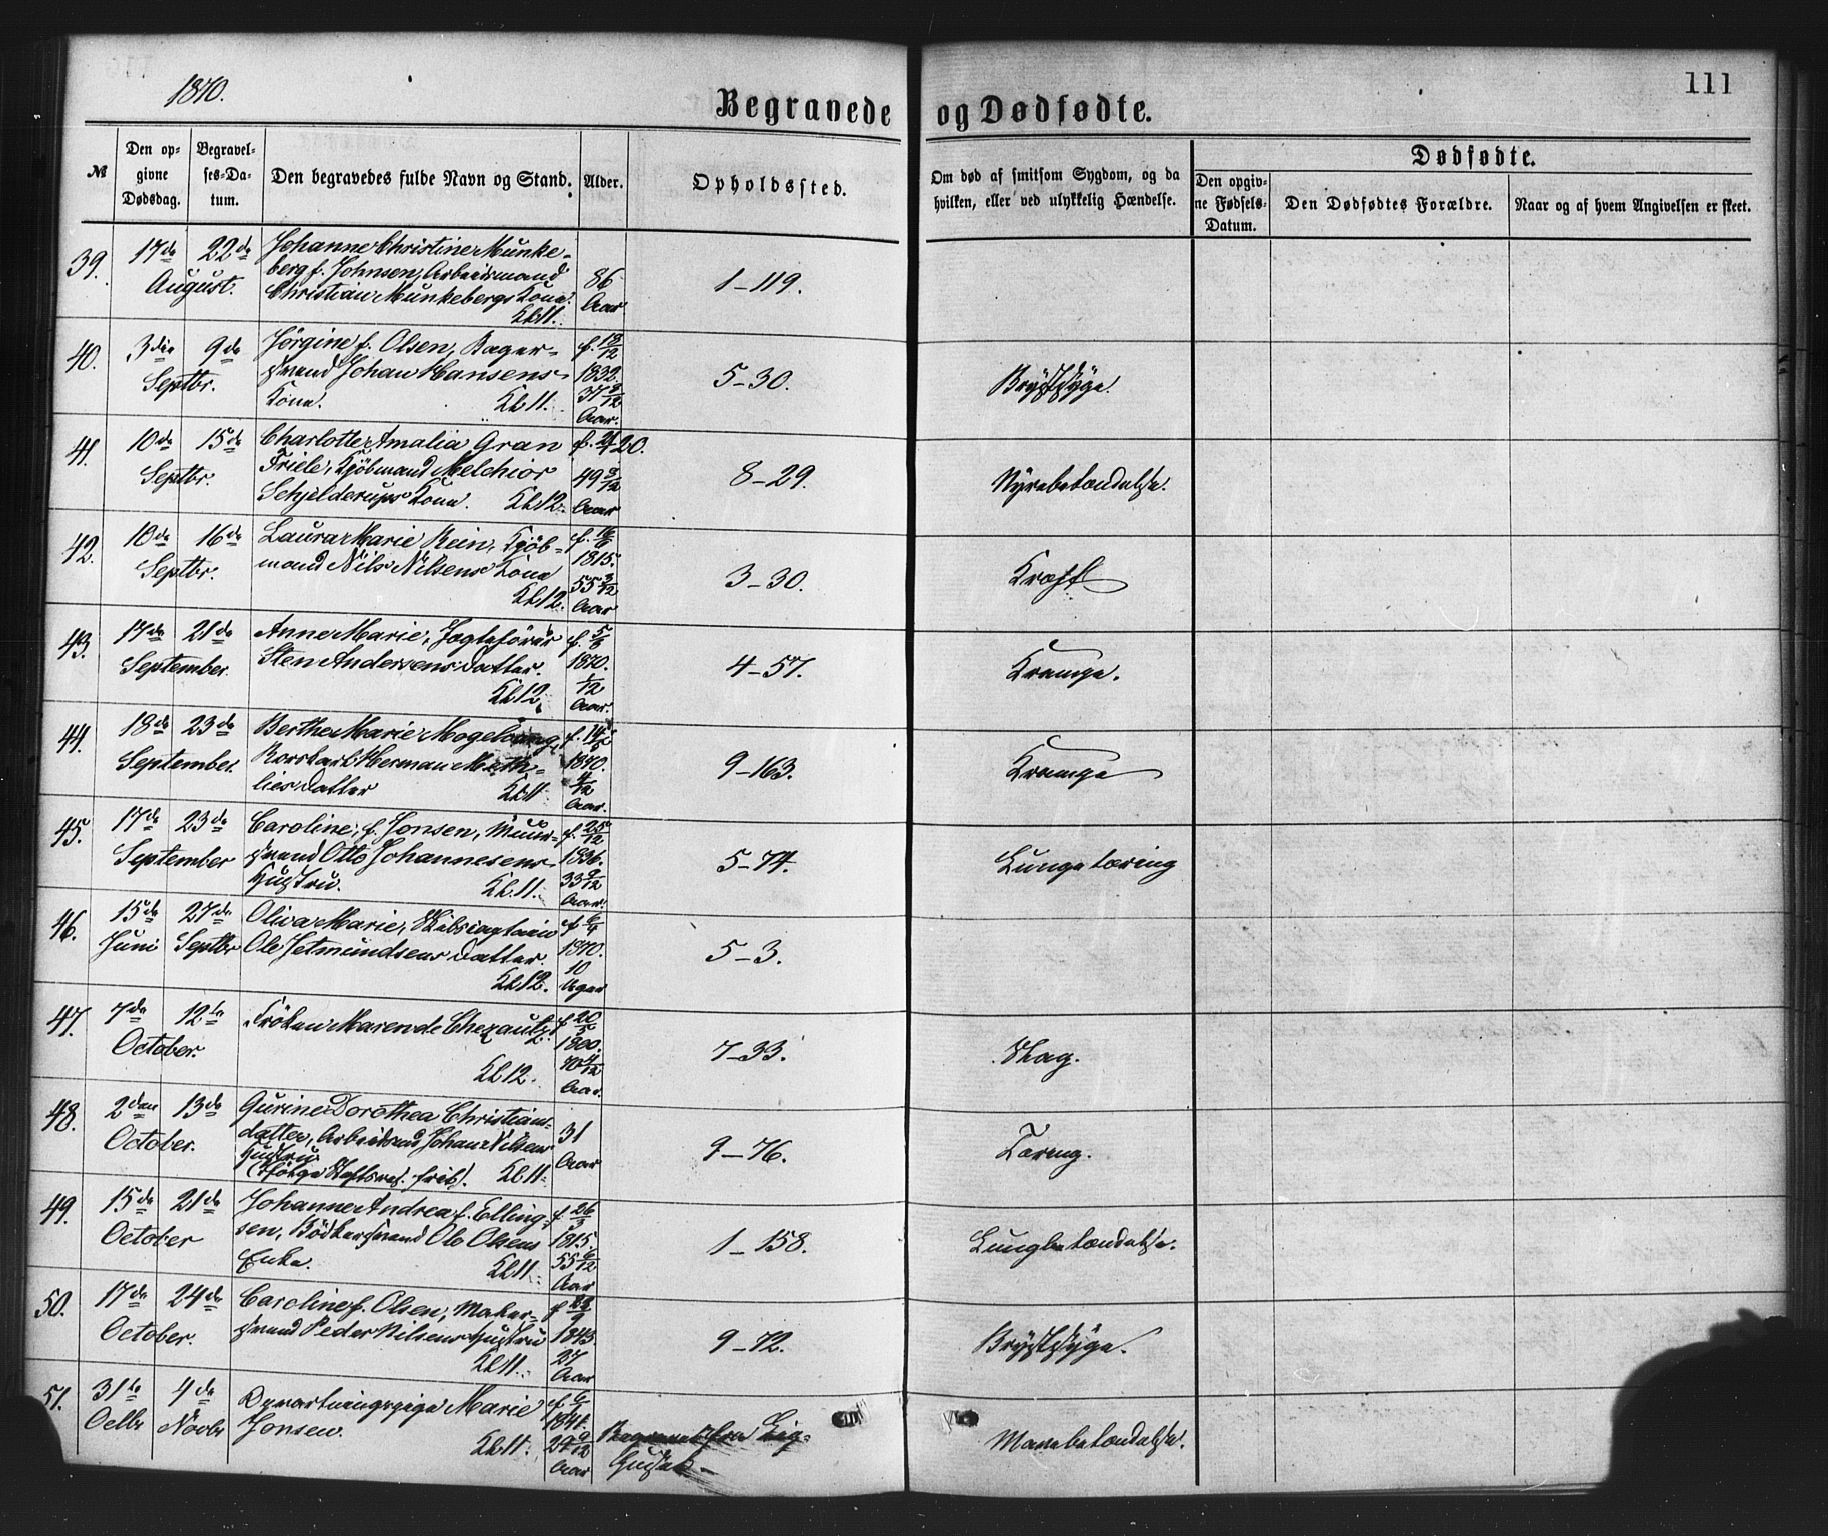 1870.
111
Begravede og Dødfødte.
№
Den opgivne Dødsdag.
Begravelses-Datum.
Den begravedes fulde Navn og Stand.
Alder.
Opholdssted.
Om død af smitsom Sygdom, og da hvilken, eller ved ulykkelig Hændelse.
Dødfødte.
Den opgivne Fødsels-Datum.
Den Dødfødtes Forældre.
Naar og af hvem Angivelsen er skeet.
39. 17de 22de August.
Johanne Christine Munke-
berg f. Johnsen, Arbeidsmand
Christian Munkebergs Kone.
Kl 11.
86 Aar
1-119.
40. 3die 9de Septbr.
Jørgine f. Olsen, Bager-
svend Johan Hansens
Kone. Kl 11.
1832.
37 9/12 Aar.
5-30.
Brystsyge.
41. 10de 15de Septbr.
Charlotte Amalia Gran
Friele, Kjöbmand Melchior
Schjelderups Kone. Kl 12.
49 Aar
8-29.
Nyrebetændelse.
42. 10de 16de Septbr.
Laura Marie Rein, Kjöb-
mand Nils Nilsens Kone
Kl 12.
1815.
55 3/12 Aar
3-30.
Kræft
43. 17de 21de September.
Anne Marie, Jægtefører
Sten Andersens Datter.
Kl 12.
1870.
1/12 Aar.
4-57.
Krampe.
44. 18de 23de September.
Berthe Marie
Rorskarl Herman Meth-
lies Datter Kl 11
f. 14/5
1870.
4/12 Aar.
9-163.
Krampe
45. 17de 23de September
Caroline, f. Jonsen, Muur-
svend Otto Johannesens
Hustru. Kl. 11.
f. 25/12
1836.
33 9/12 Aar.
5-74.
Lungetæring
46. 15de Juni 27de Septbr
Oliva Marie, Skibscaptain
Ole Jetmundsens Datter.
Kl 12.
1870.
10 Uger
5-3.
47. 7de 12te October.
Frøken Maren de Chezaulx.
Kl 12.
f 20/5
1800.
70 4/12 Aar.
7-33.
Slag.
48. 2den 13de October.
Gurine Dorothea Christians-
datter, Arbeidsmd Johan Nilsens
Hustru
Kl 11.
31 Aar
9-76.
Tæring.
49. 15de 21de October
Johanne Andrea f. Elling-
sen, Bödkersvend Ole Olsens
Enke. Kl 11.
f. 26/3
1815.
55 6/12 Aar
1-158.
Lungebetændelse.
50. 17de 24de October.
Caroline f. Olsen, Maler-
svend Peder Nilsens Hustru
Kl 11.
1843.
27 Aar
9-72.
Brystsyge.
51. 31te Octbr 4de Novbr
Opvartningspige Marie
Jonsen.
Kl 11.
1841.
29 9/12 Aar
Begravet fra Lig-
Huset
Mavebetændelse.